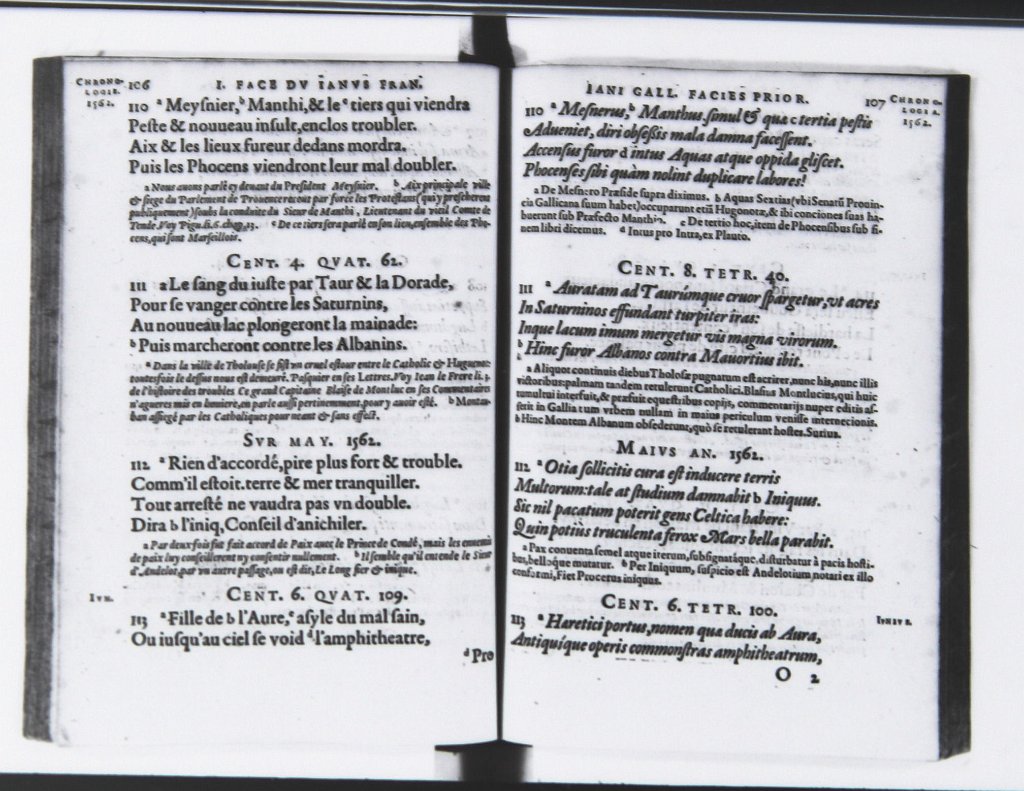 CHRONO-
LOGIE.
1562.
106
I. FACE DV IANVS FRAN.
110 a Meysnier, b Manthi, & le c tiers qui viendra
Peste & nouueau insult, enclos troubler.
Aix & les lieux fureur dedans mordra.
Puis les Phocens viendront leur mal doubler.
a Nous auons parlé cy deuant du President Meysnier. b Aix principale ville
& siege du Parlement de Prouence receut par force les Protestans (qui y prescherent
publiquement) soubs la conduite du Sieur de Manthi, Lieutenant du vieil Comte de
Tende. Voy Pigu. li. 6. chap. 13. c De ce tiers sera parlé en son lieu, ensemble des Pho-
cens, qui sont Marseillois.
CENT. 4. QVAT. 62.
111 a Le sang du iuste par Taur & la Dorade,
Pour se vanger contre les Saturnins,
Au nouueau lac plongeront la mainade:
b Puis marcheront contre les Albanins.
a Dans la ville de Tholouse se fist vn cruel estour entre le Catholic & Huguenot
toutesfois le dessus nous est demeuré. Pasquier en ses Lettres. Voy Iean le Frere li. 3.
de l'histoire des troubles Ce grand Capitaine Blaise de Monluc en ses Commentaires
n'agueres mis en lumiere, en parle aussi pertinemment, pour y auoir esté. b Montau-
ban assiegé par les Catholiques pour neant & sans effect.
SVR MAY. 1562.
112 a Rien d'accordé, pire plus fort & trouble.
Comm'il estoit. terre & mer tranquiller.
Tout arresté ne vaudra pas vn double.
Dira b l'iniq, Conseil d'anichiler.
a Par deux fois fut fait accord de Paix auec le Prince de Condé, mais les ennemis
de paix luy conseillerent ny consentir nullement. b Il semble qu'il entende le Sieur
d'Andelot, par vn autre passage, ou est dit, Le Long fier & inique.
IVN.
CENT. 6. QVAT. 109.
113 a Fille de b l'Aure, c asyle du mal sain,
Ou iusqu'au ciel se void d l'amphitheatre,
d Pro
IANI GALL. FACIES PRIOR.
107
CHRONO-
LOGIA.
1562.
110 a Mesnerus, b Manthus simul & quæ c tertia pestis
Adueniet, diri obsessis mala damna facessent.
Accensus furor d intus Aquas atque oppida gliscet.
Phocenses sibi quàm nolint duplicare labores!
a De Mesnero Præside supra diximus. b Aquas Sextias (vbi Senatũ Prouin-
cia Gallicana suum habet) occuparunt etiã Hugonotæ, & ibi conciones suas ha-
buerunt sub Præfecto Manthio. c De tertio hoc, item de Phocensibus sub fi-
nem libri dicemus. d Intus pro Intra, ex Plauto.
CENT. 8. TETR. 40.
111 a Auratam ad Taurúmque cruor spargetur, vt acres
In Saturninos effundant turpiter iras.
Inque lacum imum mergetur vis magna virorum.
b Hinc furor Albanos contra Mauortius ibit.
a Aliquot continuis diebus Tholosæ pugnatum est acriter, nunc his, nunc illis
victoribus: palmam tandem retulerunt Catholici. Blasius Montlucius, qui huic
tumultui interfuit, & præfuit equestribus copijs, commentarijs nuper editis as-
serit in Gallia tum vrbem nullam in maius periculum venisse internecionis.
b Hinc Montem Albanum obsederunt, quò se retulerant hostes. Surius.
MAIVS AN. 1562.
112 a Otia sollicitis cura est inducere terris
Multorum: tale at studium damnabit b Iniquus.
Sic nil pacatum poterit gens Celtica habere:
Quin potiùs truculenta ferox Mars bella parabit.
a Pax conuenta semel atque iterum, subsignatáque, disturbatur à pacis hosti-
bus, bellóque mutatur. b Per Iniquum, suspicio est Andelotium notari ex illo
conformi, Fiet Procerus iniquus.
CENT. 6. TETR. 100.
IVNIVS.
113 a Hæretici portus, nomen quæ ducis ab Aura,
Antiquíque operis commonstras amphitheatrum,
O 2